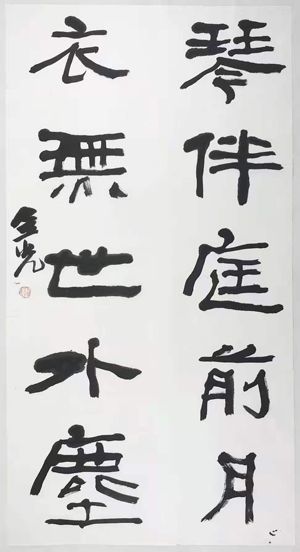 琴伴庭前月
衣無世外塵